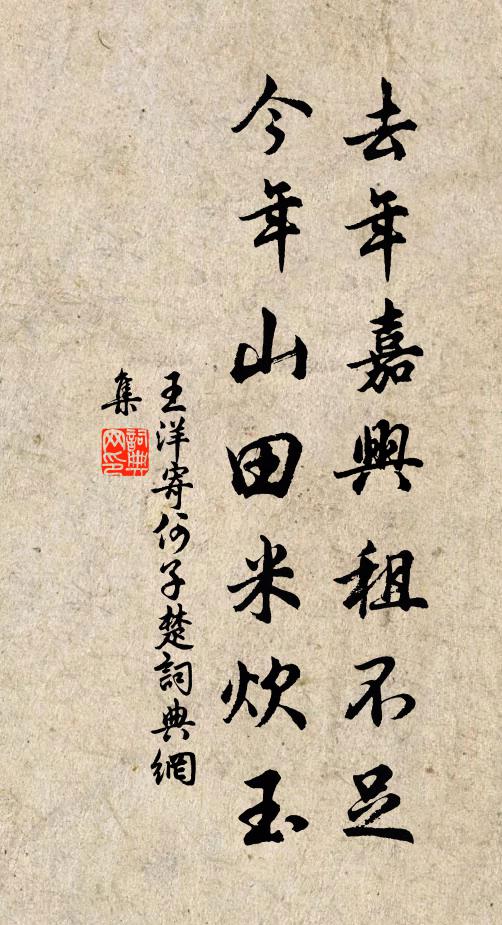 去年嘉興租不足
今年山田米炊玉
王洋寄何子楚詞典網
集
詞典
网印